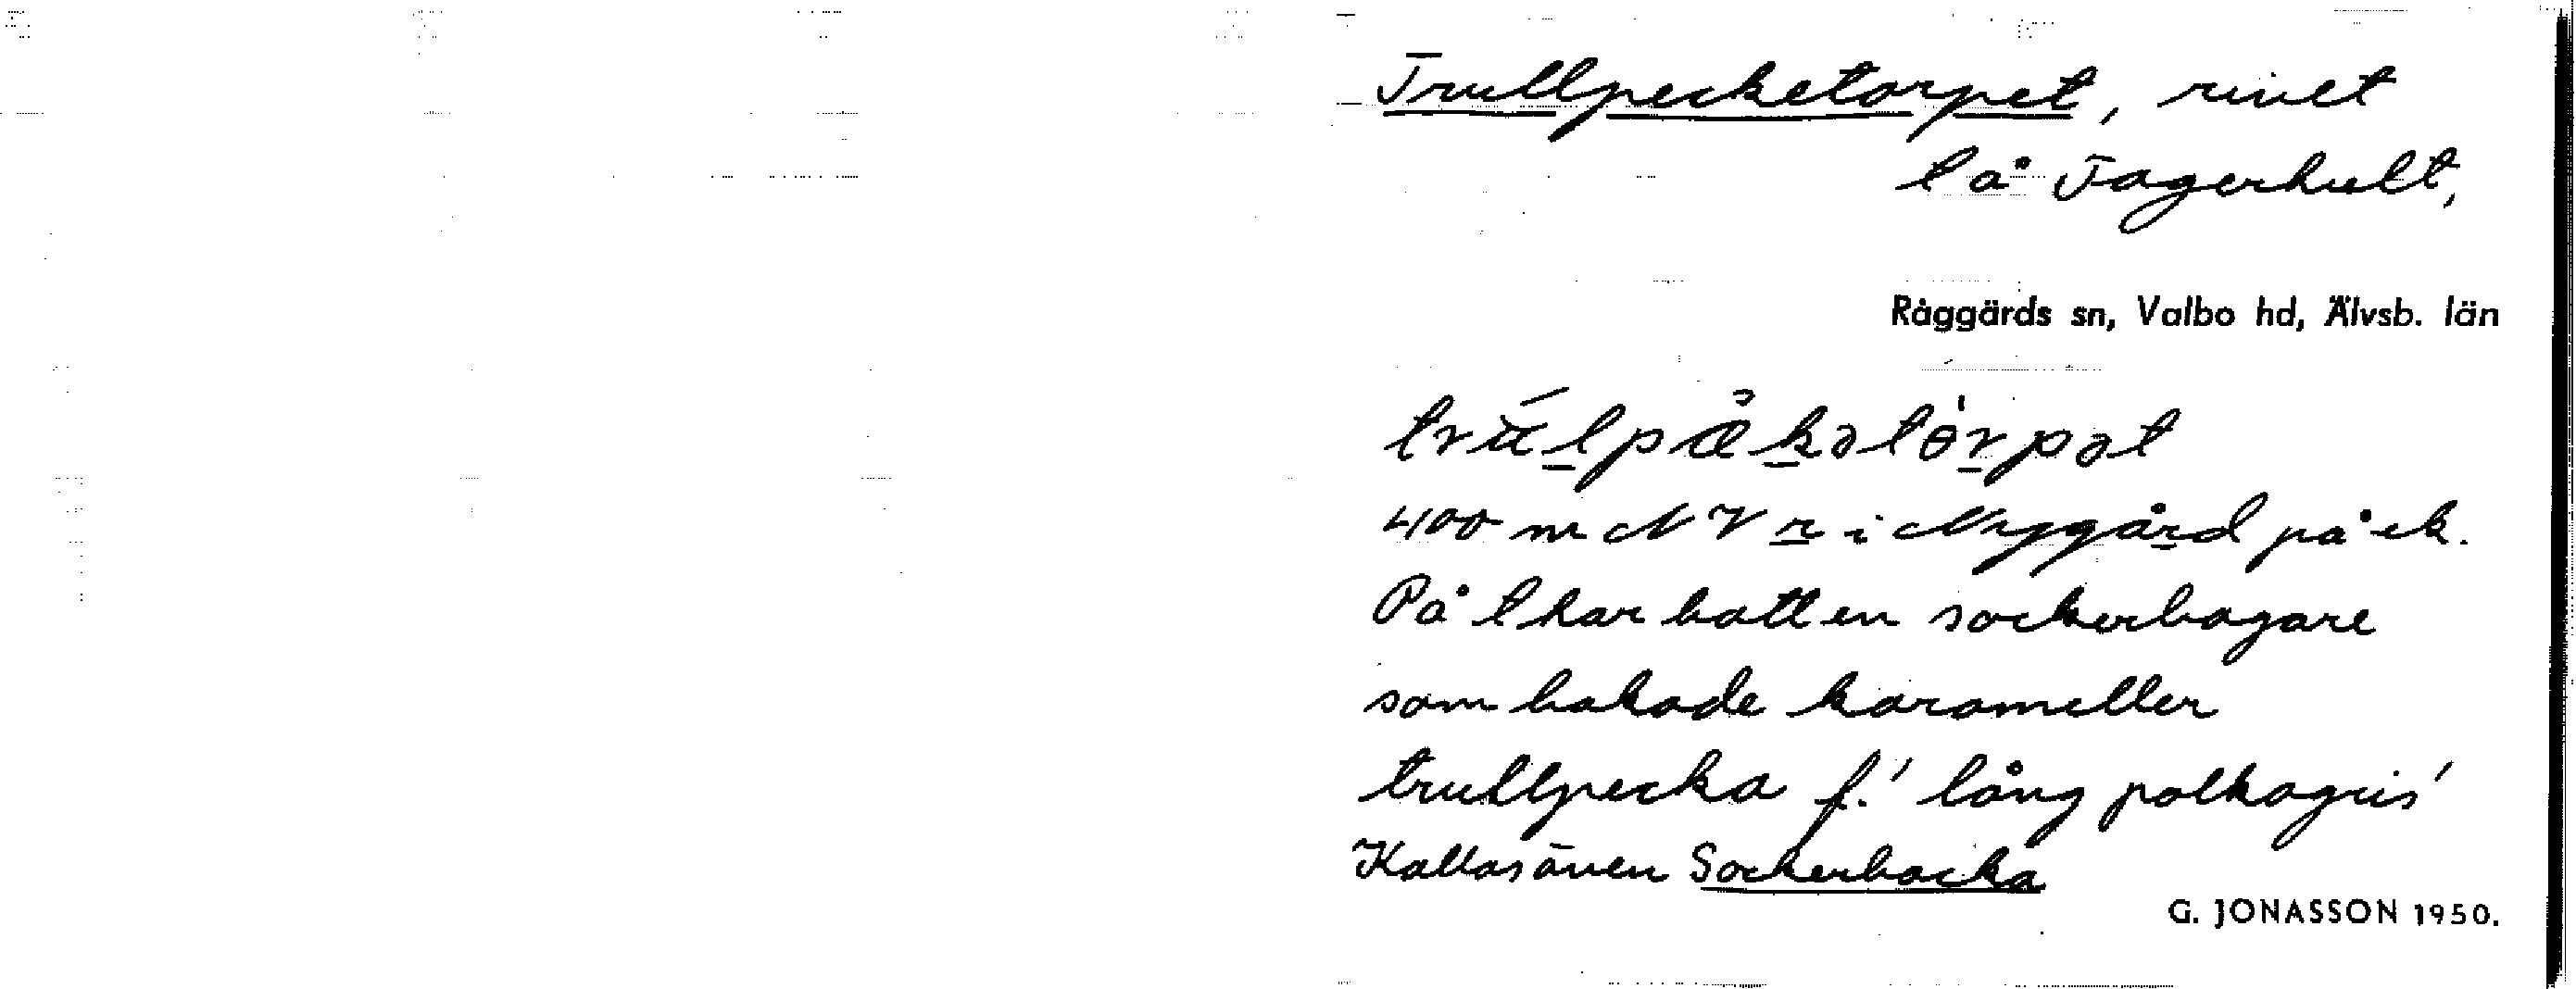 Trullpecketorpet, rivet
t å Fagerhult,
Råggärds sn, Valbo hd, Älvsb. län
400 m NV r i Nygård på ek.
På t har bott en sockerbagare
som bakade karameller
trullpecka f. ' lång polkagris '
Kallas även Sockerbacka
G. JONASSON 1950.